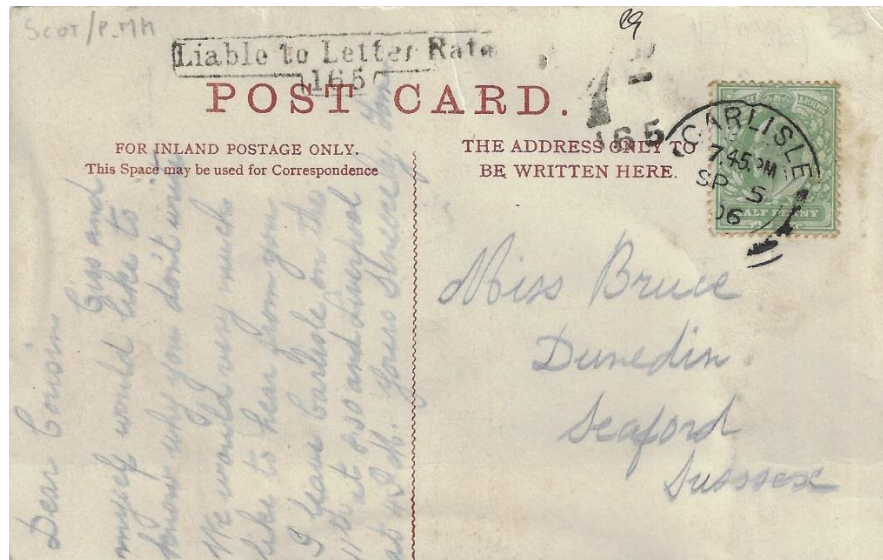 SCOT/P.MH
Liable to Letter Rate
165
POST CARD.
FOR INLAND POSTAGE ONLY.
This Space may be used for Correspondence
THE ADDRESS ONLY TO
BE WRITTEN HERE.
165
CARLISLE
7.45 PM
SP 5
06
HALF PENNY
Dear Cousin
and
myself would like to
know why you don't write
We would very much
like to hear from you
I leave Carlisle on the
11th at 8.50 and Liverpool
at 4 P.M. Yours Sincerely
Miss Bruce
Dunedin
Seaford
Susssex